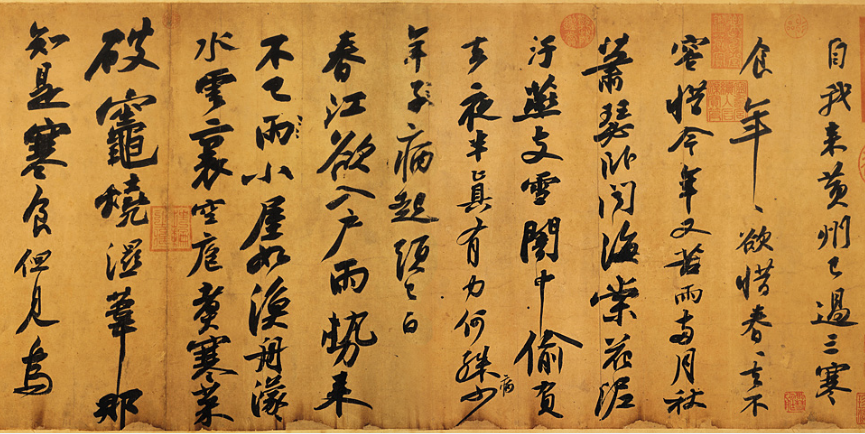 自我來黃州已過三寒
食年〻欲惜春〻去不
容惜今年又苦雨兩月秋
蕭瑟卧聞海棠花泥
汙燕支雪闇中偷負
去夜半真有力何殊病少
年子病起頭已白
春江欲入戶雨勢來
不已雨小屋如漁舟濛〻
水雲裏空庖煮寒菜
破竈燒濕葦那
知是寒食但見烏